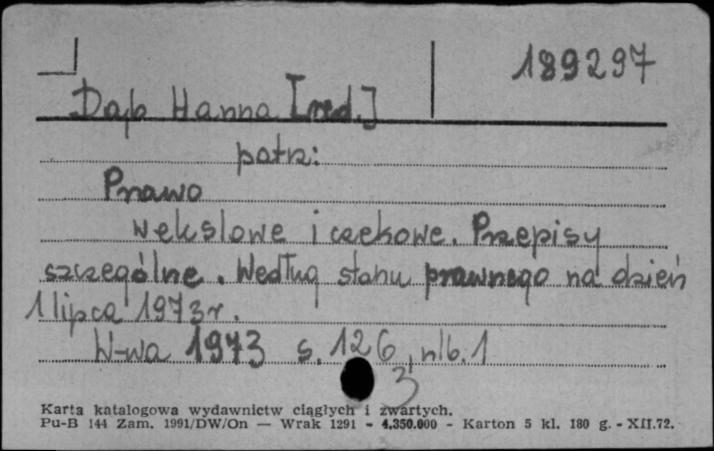 189297
Dąb Hanna [red.]
patrz:
Prawo
wekslowe i czekowe. Przepisy
szczególne. Według stanu prawnego na dzień
1 lipca 1973 r.
W-wa 1973 s. 126, nlb. 1
3
Karta katalogowa wydawnictw ciągłych i zwartych.
Pu-B 144 Zam. 1991/DW/On — Wrak 1291 - 4.350.000 - Karton 5 kl. 180 g. - XII.72.